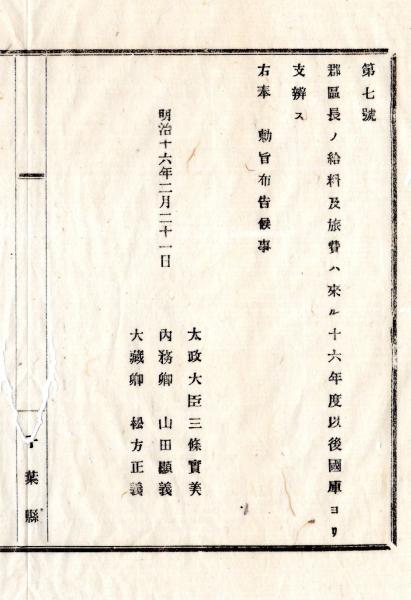 第七號
郡區長ノ給料及旅費ハ來ル十六年度以後國庫ヨリ
支辨ス
右奉 勅旨布告候事
明治十六年二月二十一日
太政大臣三條實美
內務卿 山田顯義
大藏卿 松方正義
葉縣